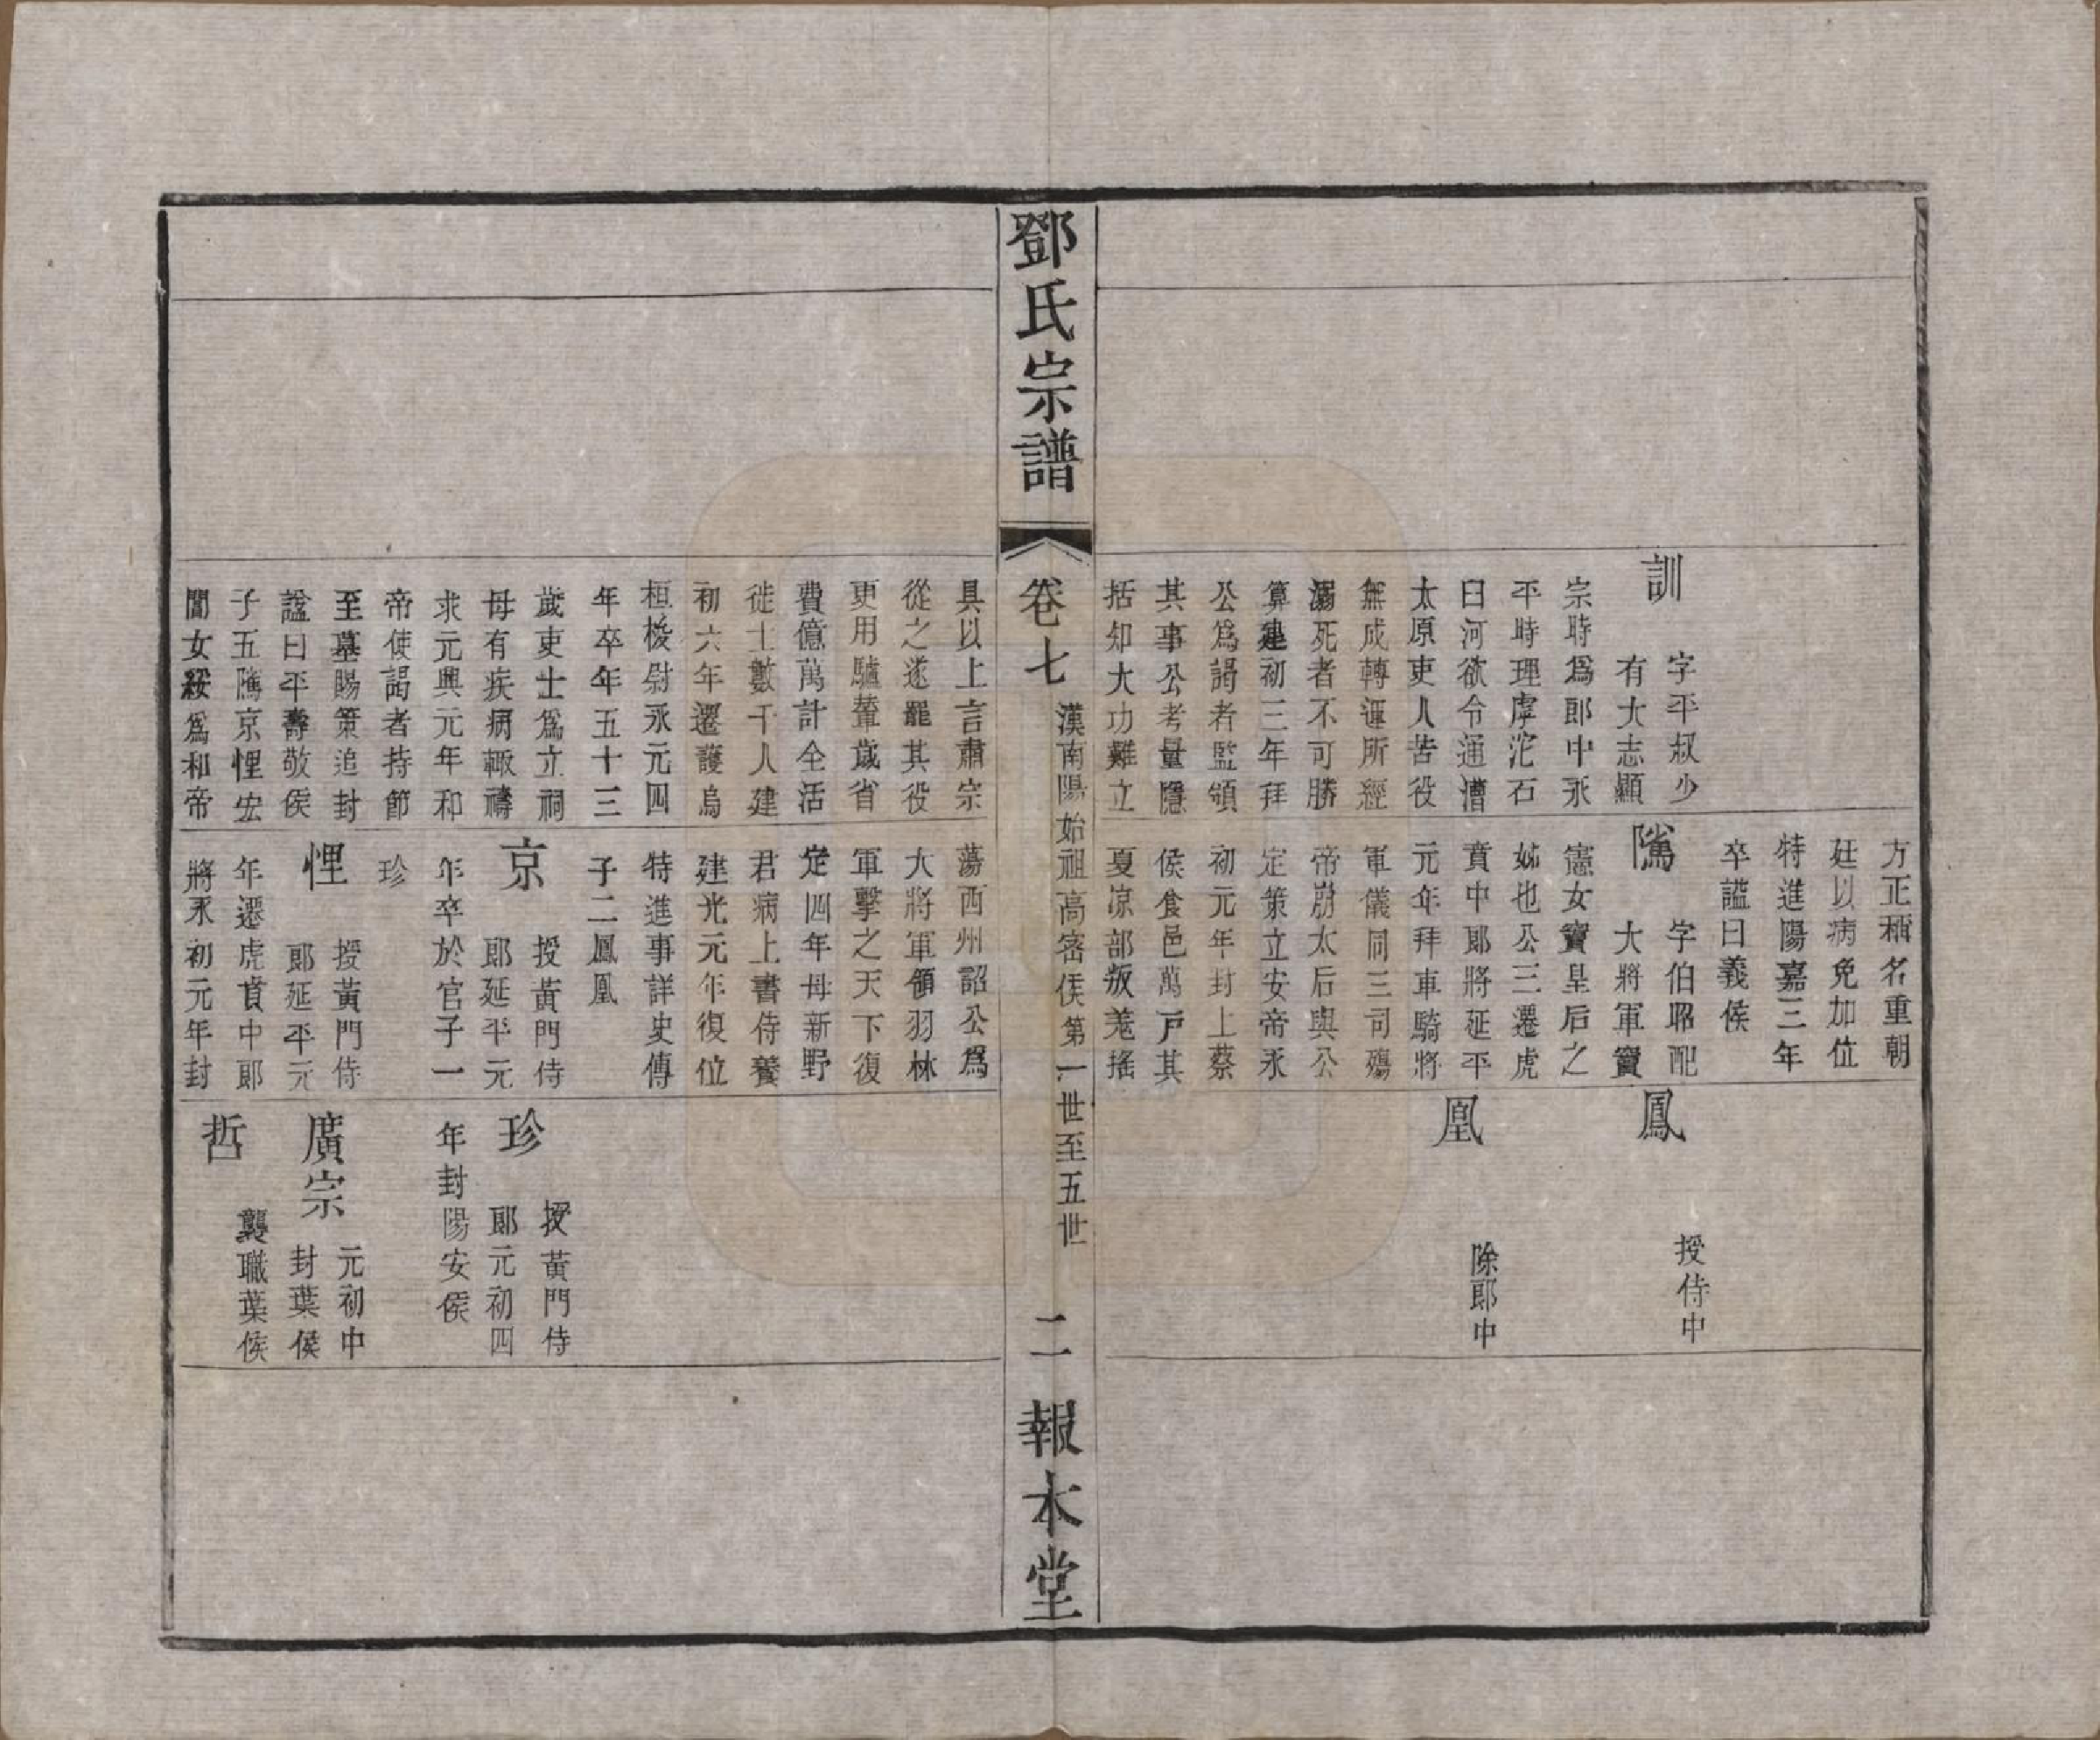 訓
字平叔少
有大志顯
宗時爲郎中永
平時理虖沱石
臼河欲令通漕
太原吏人苦役
無成轉運所經
溺死者不可勝
算建初三年拜
公爲謁者監領
其事公考量隱
括知大功難立
方正稱名重朝
廷以病免加位
特進陽嘉三年
卒謚曰義侯
隲
字伯昭配
大將軍竇
憲女竇皇后之
姊也公三遷虎
賁中郎將延平
元年拜車騎將
軍儀同三司殤
帝崩太后與公
定策立安帝永
初元年封上蔡
侯食邑萬戸其
夏凉部叛羌搖
鳳
授侍中
凰
除郎中
鄧氏宗譜
卷七
漢南陽始祖高密侯第一世至五世
二
報本堂
具以上言肅宗
從之遂罷其役
更用驢輦歲省
費億萬計全活
徙士數千人建
初六年遷護烏
桓校尉永元四
年卒年五十三
歲吏士爲立祠
母有疾病輙禱
求元興元年和
帝使謁者持節
至墓賜策追封
謚曰平壽敬侯
子五隲京悝宏
閶女綏爲和帝
蕩西州詔公爲
大將軍領羽林
軍擊之天下復
定四年母新野
君病上書侍養
建光元年復位
特進事詳史傳
子二鳳凰
京
授黃門侍
郎延平元
年卒於官子一
珍
悝
授黃門侍
郎延平元
年遷虎賁中郎
將永初元年封
珍
授黃門侍
郎元初四
年封陽安侯
廣宗
元初中
封葉侯
哲
襲職葉侯